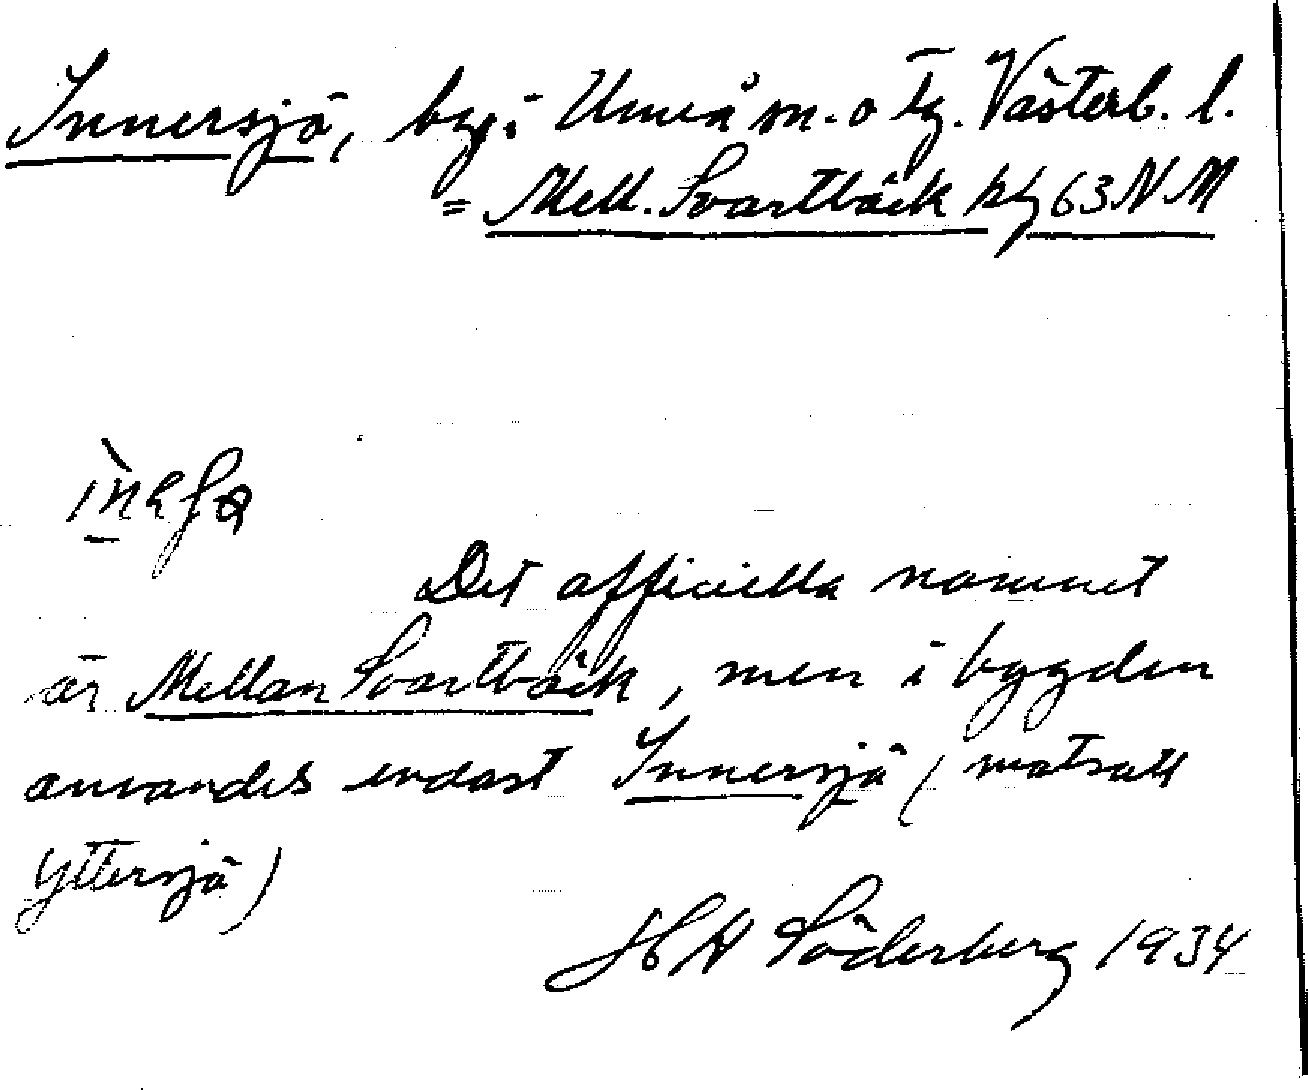 Innersjö, by i Umeå m. o tg. Västerb. l.
= Mell. Svartbäck kbl 63 N M
Det officiella namnet
är Mellan Svartbäck, men i bygden
användes endast Innersjö (motsatt
Yttersjö)
H Söderberg 1934